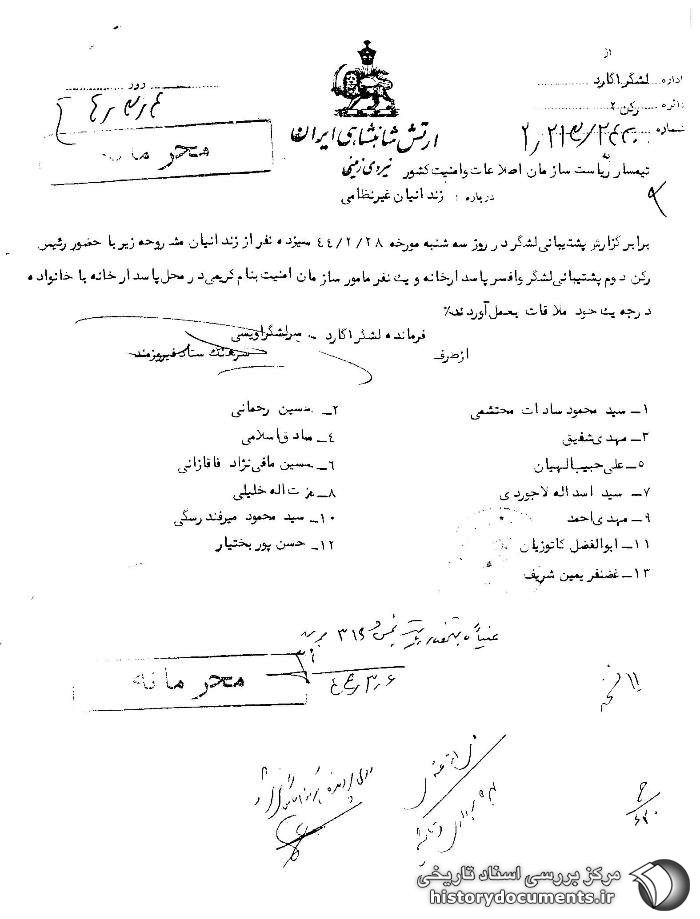 از
اداره لشگر ۱ گارد
دائره رکن ۲
شماره
روز
ارتش شاهنشاهی ایران
نیروی زمینی
محرمانه
تیمسار ریاست سازمان اطلاعات وامنیت کشور
درباره : زندانیان غیرنظامی
برابرگزارش پشتیبانی لشگر در روز سه شنبه مورخه ۴۴/۲/۲۸ سیزده نفر از زندانیان مشروحه زیر با حضور رئیس
رکن دوم پشتیبانی لشگر وافسر پاسدارخانه و یک نفر مامور سازمان امنیت بنام کریمی در محل پاسدارخانه با خانواده
درجه یک خود ملاقات بعمل آوردند٪
فرمانده لشگر ۱ گارد ـ سرلشگر اویسی
ازطرف سرهنگ ستاد فیروزمند
۱ـ سید محمود سادات محتشمی
۲ـ حسین رحمانی
۳ـ مهدی شفیق
۴ـ صادق اسلامی
۵ـ علی حبیب الهیان
۶ـ حسین مافی نژاد قاقازانی
۷ـ سید اسداله لاجوردی
۸ـ عزت اله خلیلی
۹ـ مهدی احمد
۱۰ـ سید محمود میرفندرسگی
۱۱ـ ابوالفضل کاتوزیان
۱۲ـ حسن پوربختیار
۱۳ـ غضنفر یمین شریف
محرمانه
مرکز بررسی اسناد تاریخی
historydocuments.ir